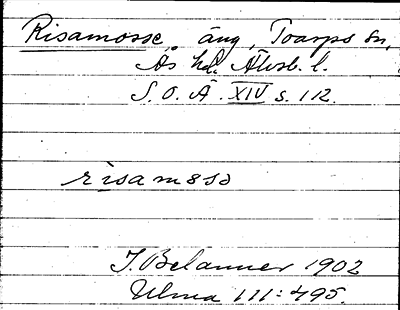 Risamosse, äng, Toarps sn,
Ås hd. Älvsb. l.
S. O. Ä. XIV s. 112.
risamosə
J. Belanner 1902
Ulma 111:495.